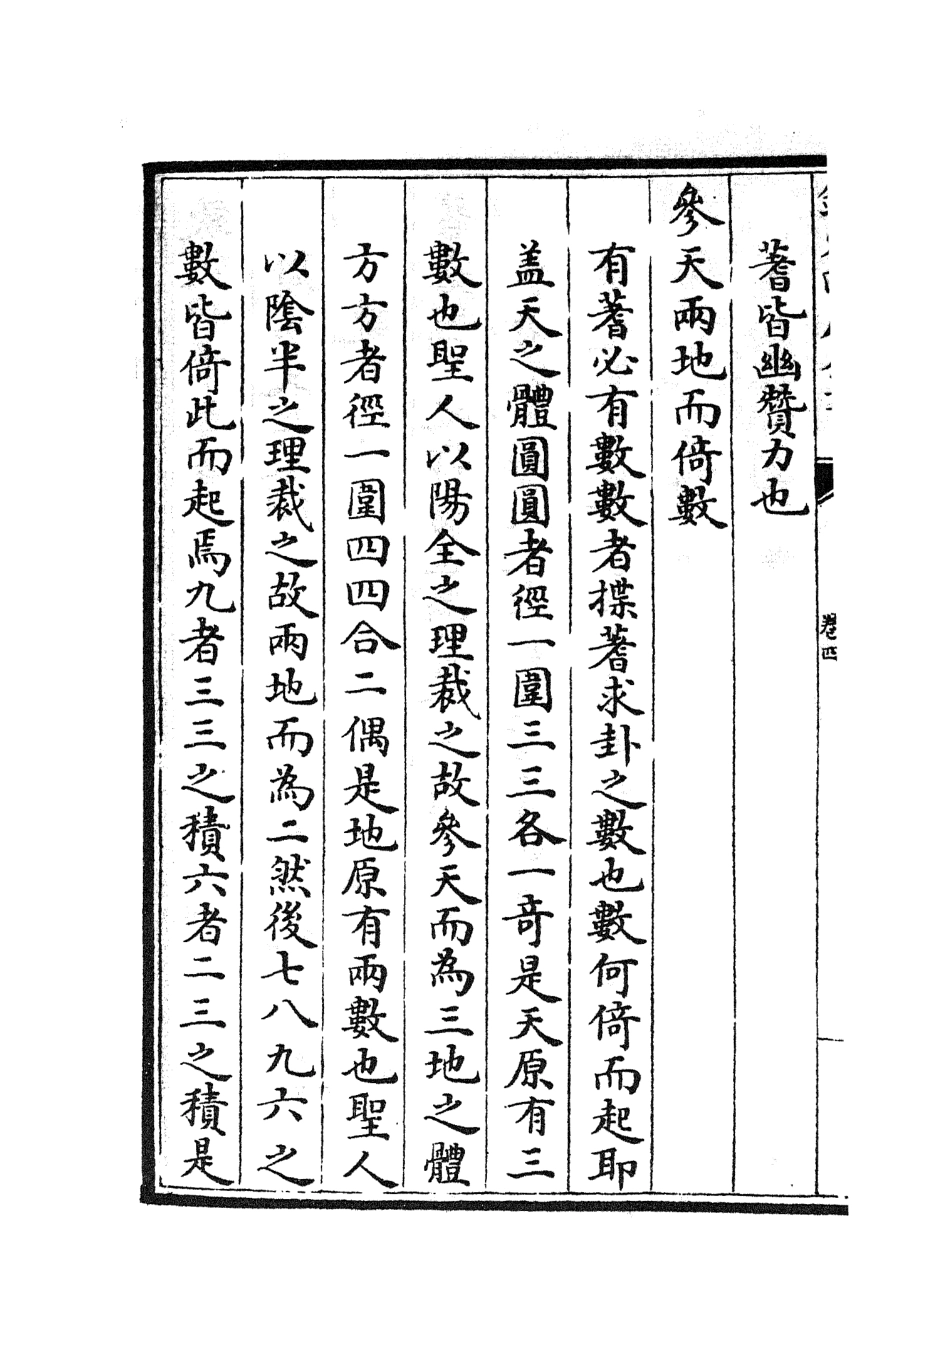 蓍皆幽贊力也
參天兩地而倚數
有蓍必有數數者揲蓍求卦之數也數何倚而起耶
盖天之體圓圓者徑一圍三三各一奇是天原有三
數也聖人以陽全之理裁之故參天而為三地之體
方方者徑一圍四四合二偶是地原有兩數也聖人
以陰半之理裁之故兩地而為二然後七八九六之
數皆倚此而起焉九者三三之積六者二三之積是
卷四